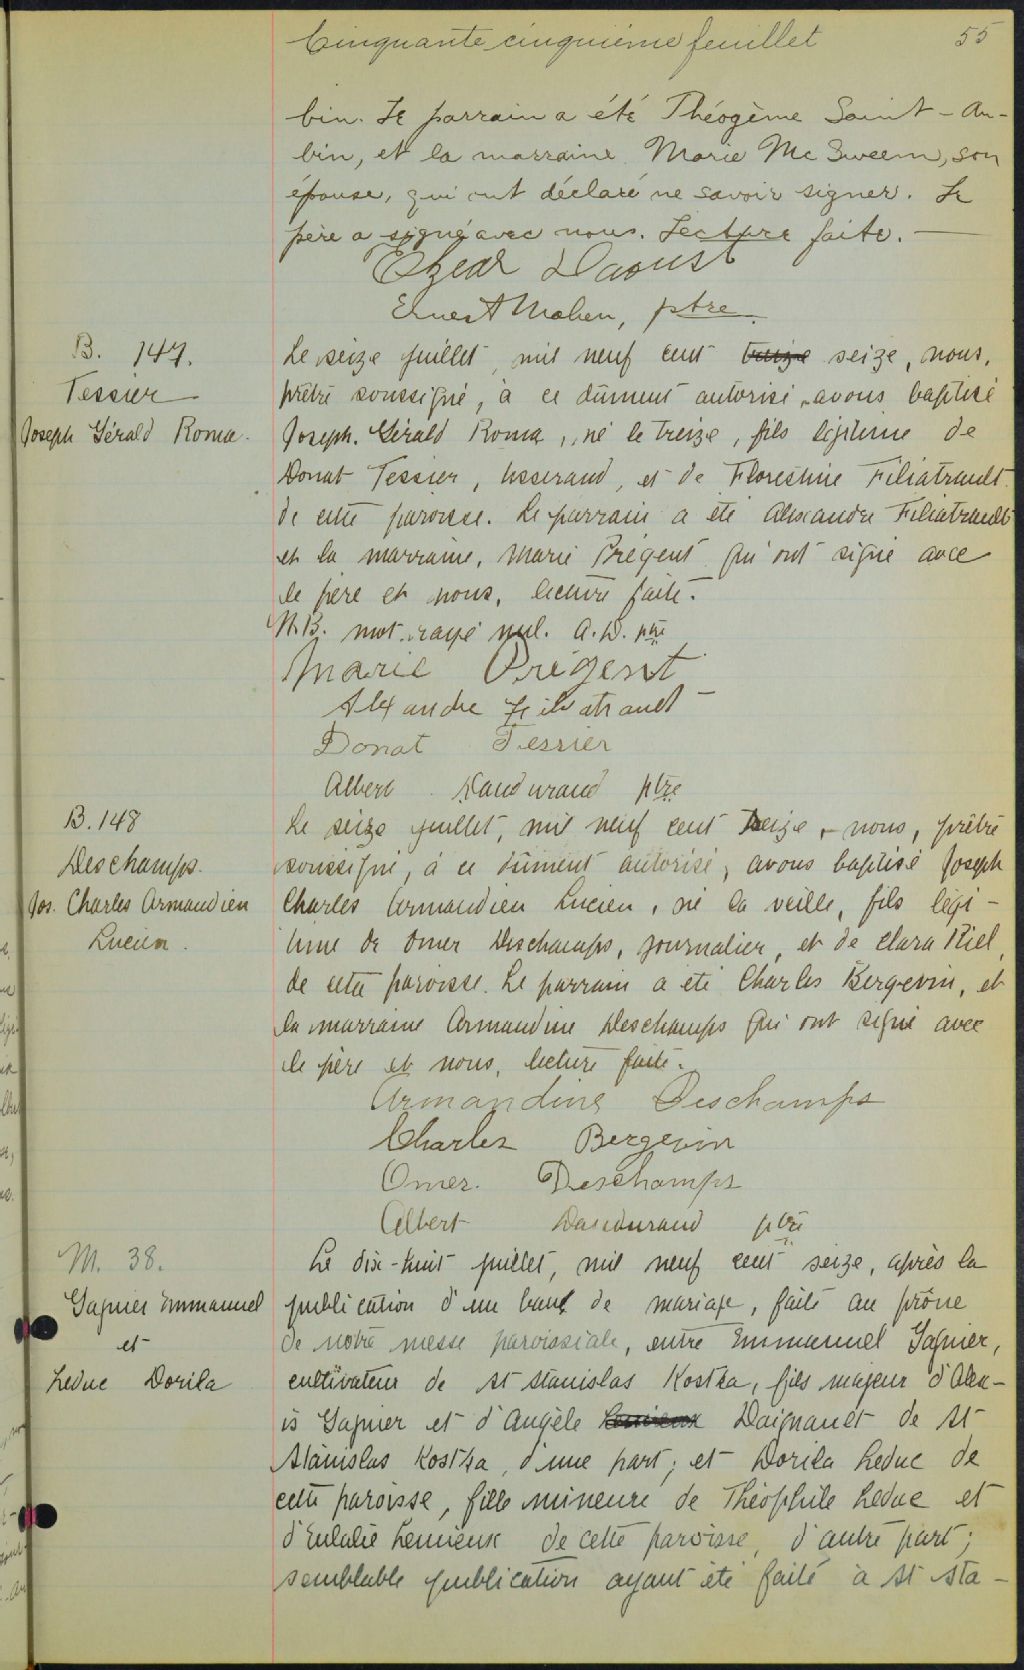 Cinquante cinquième feuillet 55
bin. Le parrain a été Théogème Saint-Au-
bin, et la marraine Marie Mc Sweem, son
épouse, qui ont déclaré ne savoir signer. Le
père a signé avec nous. Lecture faite. —
Ezear Daoust
Ernest Mahen, ptre.
B. 147.
Tessier
Joseph Gérald Roma.
Le seize juillet, mil neuf cent treize seize, nous,
prêtre soussigné, à ce dûment autorisé, avons baptisé
Joseph. Gérald Roma, né le treize, fils légitime de
Donat Tessier, tisserand, et de Florestine Filiatrault
de cette paroisse. Le parrain a été Alexandre Filiatrault
et la marraine, Marie Prégent qui ont signé avec
le père et nous, lecture faite.
N.B. mot rayé nul. A. D. ptre
Marie Prégent
Alexandre Filiatrault
Donat Tessier
Albert Dandurand ptre
B. 148
Deschamps.
Jos. Charles Armandien
Lucien.
Le seize juillet, mil neuf cent seize, nous, prêtre
soussigné, à ce dûment autorisé, avons baptisé Joseph
Charles Armandien Lucien, né la veille, fils légi-
time de Omer Deschamps, journalier, et de Clara Riel,
de cette paroisse. Le parrain a été Charles Bergevin, et
la marraine Armandine Deschamps qui ont signé avec
le père et nous, lecture faite.
Armandine Deschamps
Charles Bergevin
Omer. Deschamps
Albert Dandurand ptre
M. 38.
Gagnier Emmanuel
et
Leduc Dorila
Le dix-huit juillet, mil neuf cent seize, après la
publication d'un banc de mariage, faite au prône
de notre messe paroissiale, entre Emmanuel Gagnier,
cultivateur de St Stanislas Kostka, fils majeur d'Alex-
is Gagnier et d'Angèle Lemieux Daignault de St
Stanislas Kostka, d'une part; et Dorila Leduc de
cette paroisse, fille mineure de Théophile Leduc et
d'Eulalie Lemieux de cette paroisse, d'autre part;
semblable publication ayant été faite à St Sta-